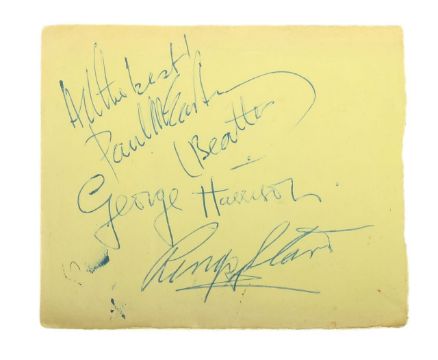 All the best!
Paul McCartney
(Beatles)
George Harrison.
Ringo Starr